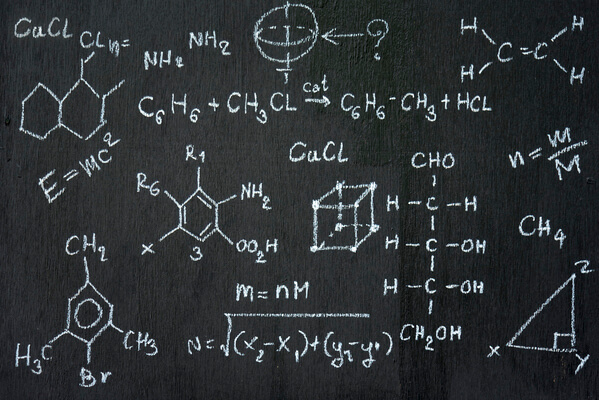 CaCL
CLn=
NH2 NH2
?
H H
C=C
H H
C6H6+CH3CL cat→ C6H6-CH3+HCL
E=mc2
n=m/M
R1
R6
NH2
X
3
OO2H
CaCL
CHO
H-C-H
H-C-OH
H-C-OH
CH2OH
CH4
CH2
H3C
CH3
Br
m=nM
N=√(x2-x1)+(y2-y1)
z
x
y